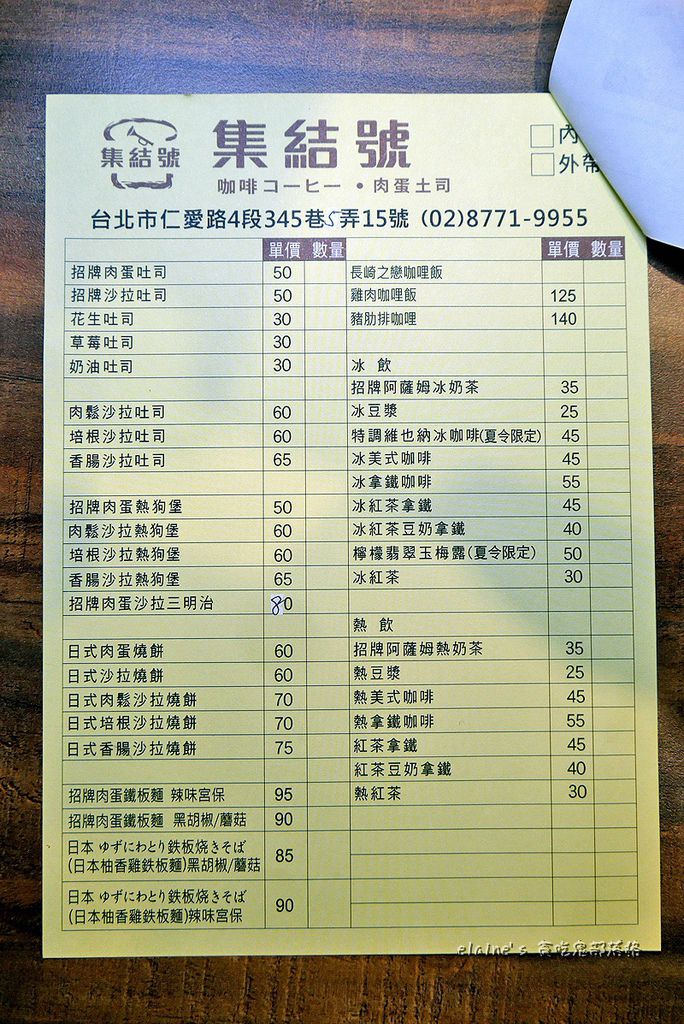 集結號
集結號
咖啡コーヒー・肉蛋土司
內
外帶
台北市仁愛路4段345巷5弄15號 (02)8771-9955
單價 數量
招牌肉蛋吐司 50
招牌沙拉吐司 50
花生吐司 30
草莓吐司 30
奶油吐司 30
肉鬆沙拉吐司 60
培根沙拉吐司 60
香腸沙拉吐司 65
招牌肉蛋熱狗堡 50
肉鬆沙拉熱狗堡 60
培根沙拉熱狗堡 60
香腸沙拉熱狗堡 65
招牌肉蛋沙拉三明治 80
日式肉蛋燒餅 60
日式沙拉燒餅 60
日式肉鬆沙拉燒餅 70
日式培根沙拉燒餅 70
日式香腸沙拉燒餅 75
招牌肉蛋鐵板麵 辣味宮保 95
招牌肉蛋鐵板麵 黑胡椒/蘑菇 90
日本 ゆずにわとり鉄板焼きそば
(日本柚香雞鉄板麵)黑胡椒/蘑菇 85
日本 ゆずにわとり鉄板焼きそば
(日本柚香雞鉄板麵)辣味宮保 90
單價 數量
長崎之戀咖哩飯
雞肉咖哩飯 125
豬肋排咖哩 140
冰 飲
招牌阿薩姆冰奶茶 35
冰豆漿 25
特調維也納冰咖啡(夏令限定) 45
冰美式咖啡 45
冰拿鐵咖啡 55
冰紅茶拿鐵 45
冰紅茶豆奶拿鐵 40
檸檬翡翠玉梅露(夏令限定) 50
冰紅茶 30
熱 飲
招牌阿薩姆熱奶茶 35
熱豆漿 25
熱美式咖啡 45
熱拿鐵咖啡 55
紅茶拿鐵 45
紅茶豆奶拿鐵 40
熱紅茶 30
elaine's 貪吃鬼部落格